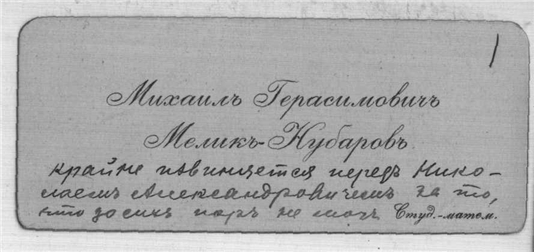 1
Михаилъ Герасимовичъ
Меликъ-Кубаровъ
крайне извиняется передъ Нико-
лаемъ Александровичемъ за то,
что до сихъ поръ не могъ Студ.-матем.